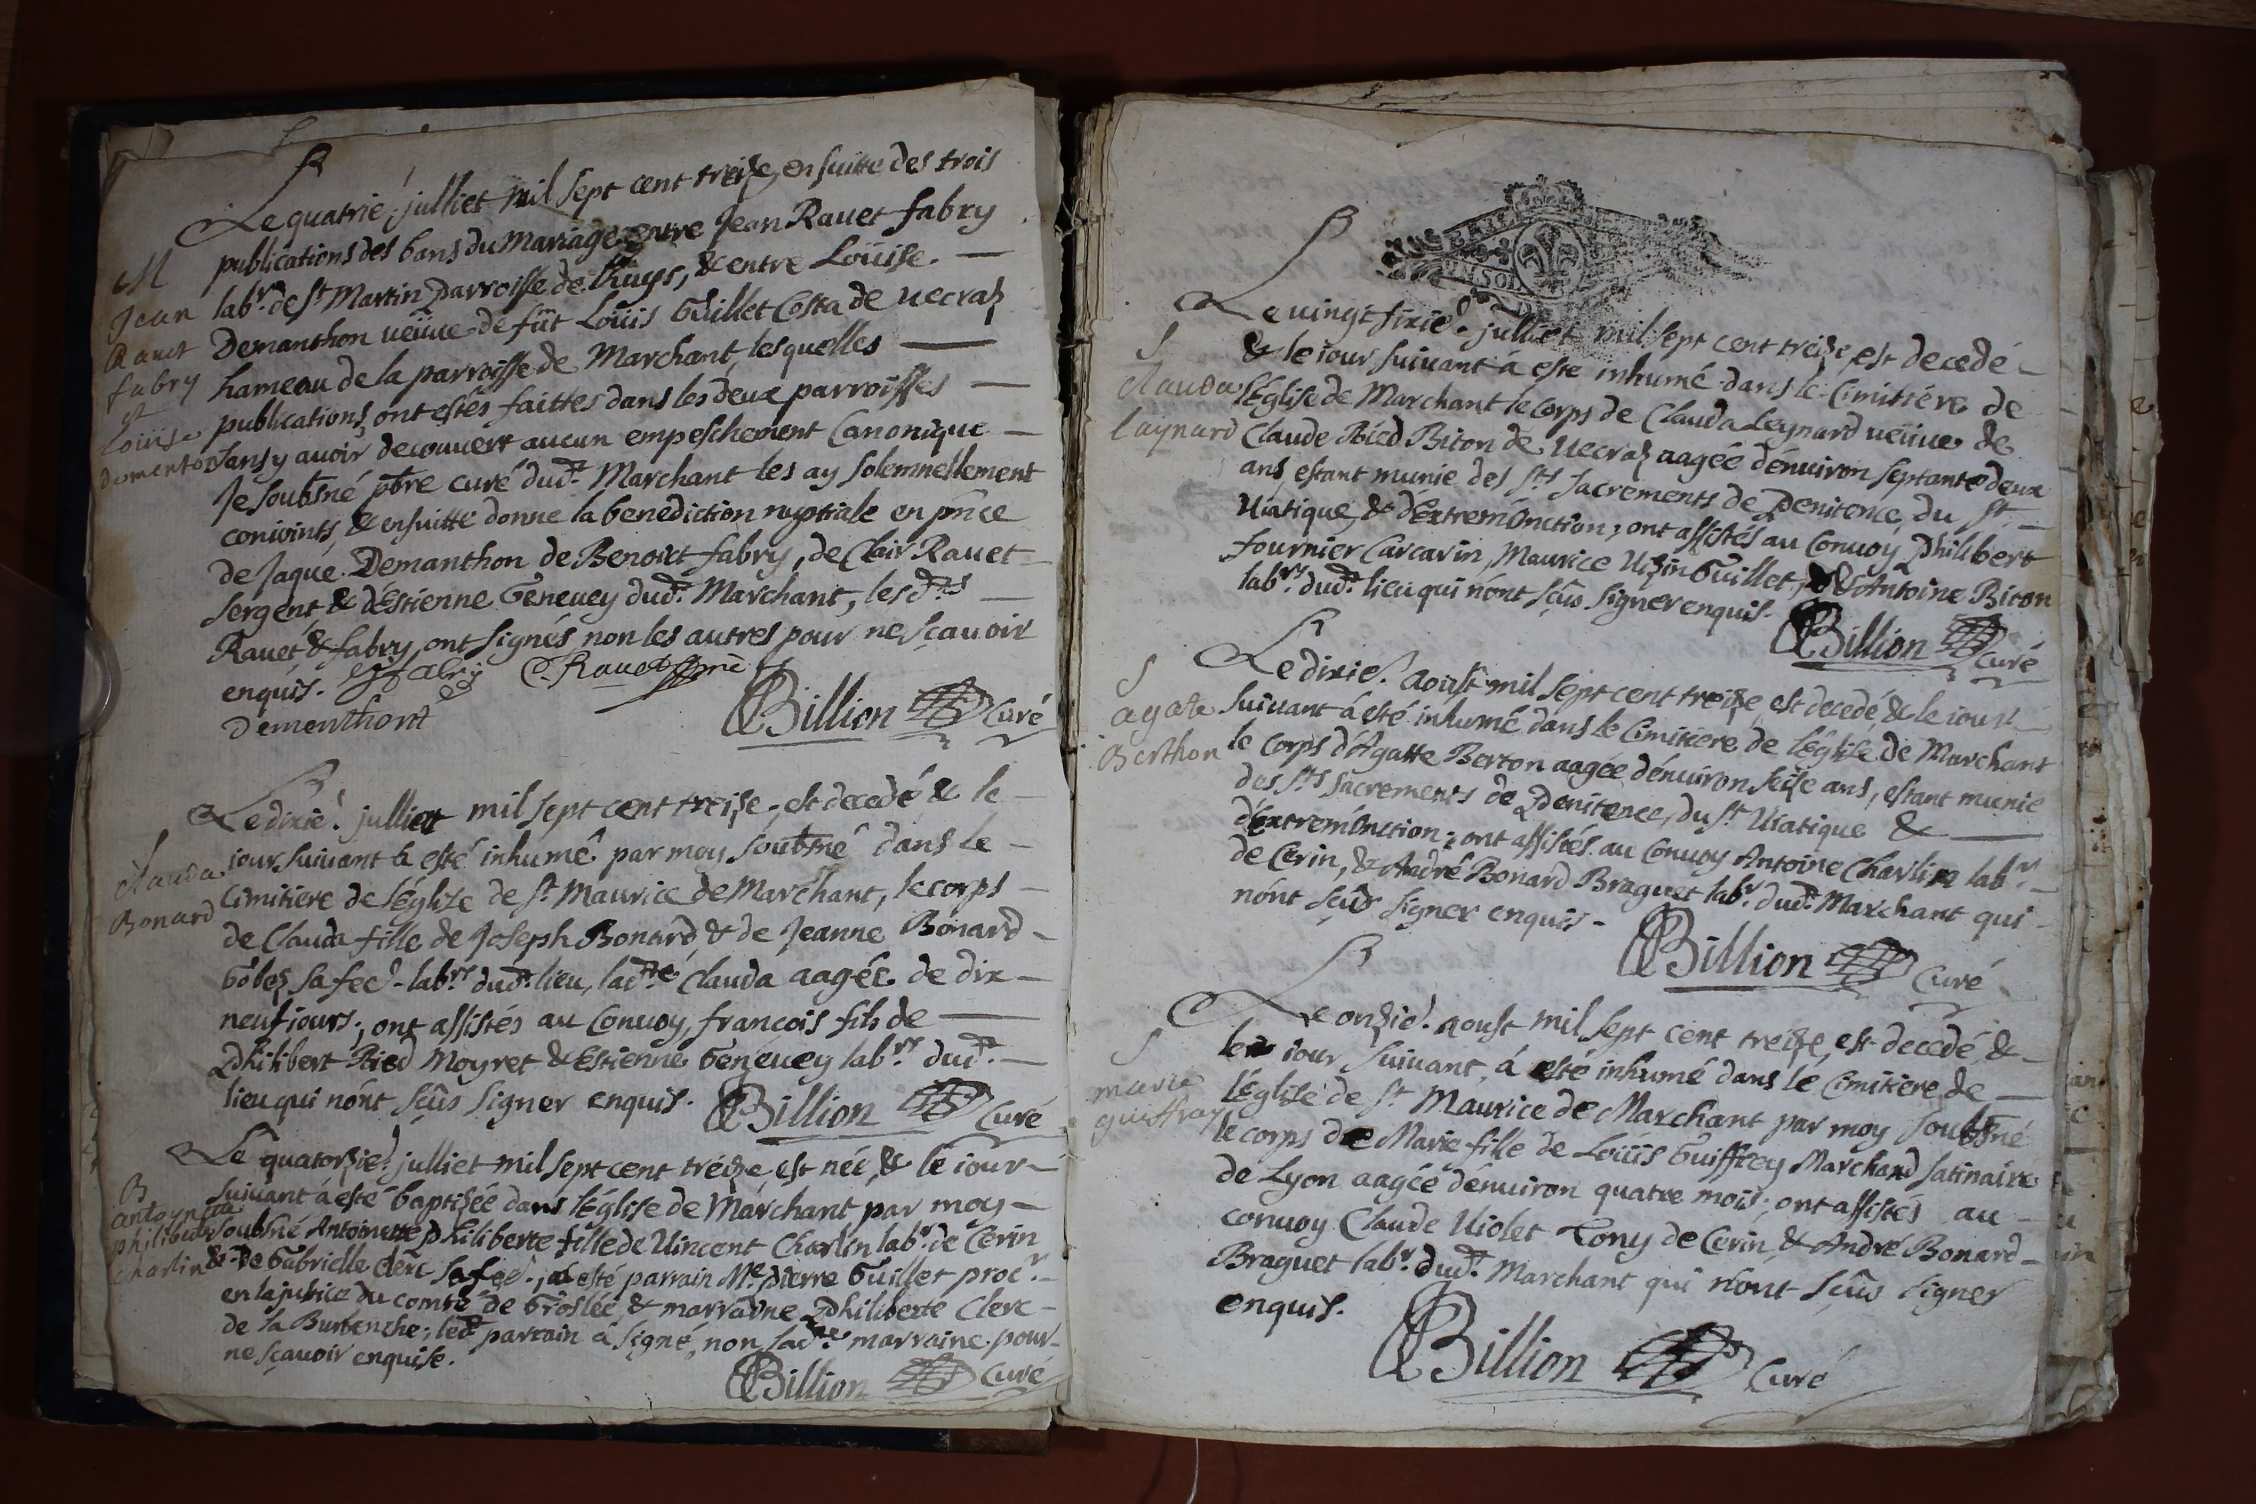 Le quatrie. julliet mil sept cent treize, ensuitte des trois
publications des bans du Mariage entre Jean Rauet fabry
labr. de St Martin parroisse de Lhuys, & entre Loüise. —
Demanthon ueüue de füt Loüis Guillet Costa de uecraz
hameau de la parroisse de Marchant, lesquelles —
publications, ont estés faittes dans les deux parroisses —
sans y auoir decouuert aucun empeschement Canonique —
Je soubsné pbre curé dudt. Marchant les ay solemnellement
conioints, & ensuitte donne la benediction nuptiale en pnce
de Jaque Demanthon de Benoict fabry, de Clair Rauet
sergent, & d'Estienne Geneuey dudt. Marchant, les dts —
Rauet, & fabry, ont signés non les autres pour ne sçauoir
enquis. Fabry C. Rauet
Dementhont
Billion Curé
M
Jean
Rauet
fabry
et
Loüise
dementon
Le dixie. julliet mil sept cent treize, est decedé & le —
iour suiuant a esté inhumé par moy soubsné dans le —
Cimitiere de l'églize de St Maurice de Marchant, le corps —
de Clauda fille de Joseph Bonard & de Jeanne Bonard —
Gobez sa fed. labrs dudt. lieu, ladte Clauda aagée de dix —
neuf iours; ont assistés au Conuoy, francois fils de —
Philibert Bied Moyret & Estienne Geneuey labrs dudt. —
lieu qui n'ont sçûs signer enquis. Billion Curé
S
Clauda
Bonard
Le quatorzie. julliet mil sept cent treize, est née, & le iour —
suiuant a esté baptizée dans l'Église de Marchant par moy —
soubsné Antoinette philiberte fille de Uincent Charlin labr. de Cerin
& de Gabrielle Clerc sa fed., a esté parrain Me pierre Guillet procr. —
en la justice du comté de Groslée, & marraine Philiberte Clerc —
de la Burbenche; ledt parrain a signé, non ladte marraine pour —
ne sçauoir enquise.
Billion Curé
B
antoynetta
philiberte
charlin
UN SOL
Le uingt sixie. julliet mil sept cent treize, est decedé —
& le iour suiuant á esté inhumé dans le Cimitiére de
l'Église de Marchant le corps de Clauda Leynard ueüue de
Claude Bied Biron de Uecraz aagée d'énuiron septante deux
ans, estant munie des Sts Sacrements de Penitence, du St. —
Uiatique, & d'Extrem'Onction; ont assistés au Conuoy Philibert
fournier Carcarin, Maurice Uzin Guillet, & Antoine Biron
labrs dudt. lieu qui n'ont sçûs signer enquis.
Billion Curé
S
Clauda
Laynard
Le dixie. Aoust mil sept cent treize est decedé, & le iour —
suiuant á esté inhumé dans le Cimitiere de l'église de Marchant
le corps d'Agatte Berton aagée d'énuiron seize ans, estant munie
des Sts Sacrements de Penitence, du St. Uiatique & —
d'éxtrem'Onction; ont assistés au Conuoy Antoine Charlin labr. —
de Cerin, & André Bonard Braguet labr. dudt. Marchant qui —
n'ont sçûs signer enquis —
Billion Curé
S
agata
Berthon
Le onzie. aoust mil sept cent treize, est decedé & —
le iour suiuant, á esté inhumé dans le Cimitiere de —
l'église de St Maurice de Marchant par moy soubsné
le corps de Marie fille de Loüis Guiffrey Marchand satinaire
de Lyon aagée d'énuiron quatre mois; ont assistés au —
conuoy Claude Uiolet Tony de Cerin, & André Bonard —
Braguet labr. dudt. Marchant qui n'ont sçûs signer
enquis.
Billion Curé
S
marie
guiffray